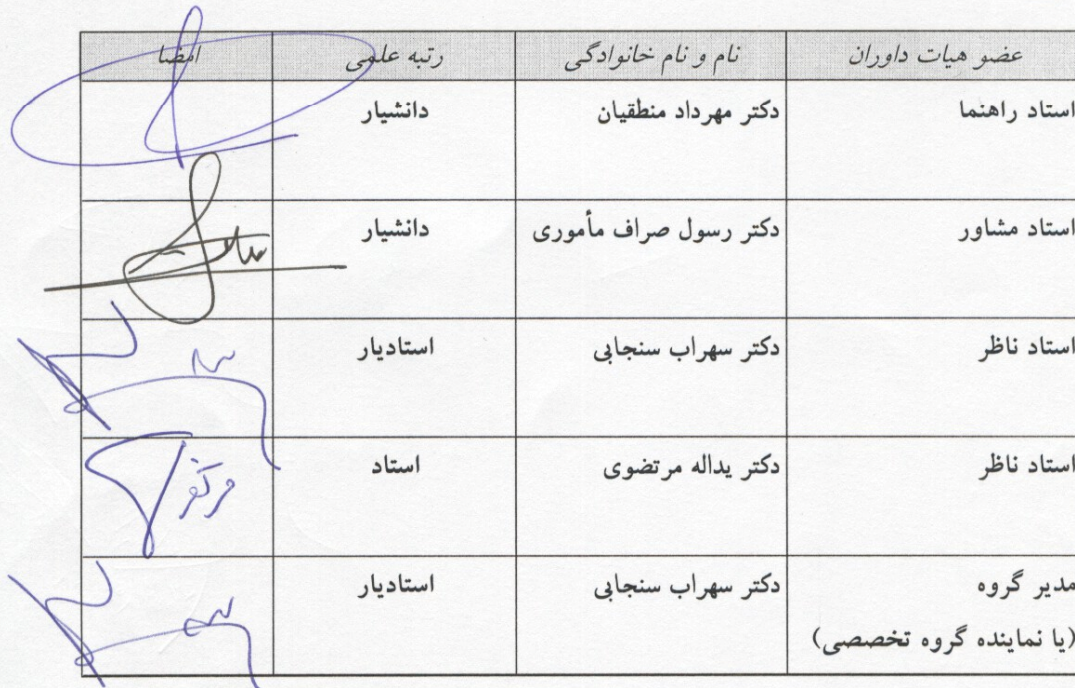 عضو هیات داوران نام و نام خانوادگی رتبه علمی امضا
استاد راهنما دکتر مهرداد منطقیان دانشیار
استاد مشاور دکتر رسول صراف مأموری دانشیار
استاد ناظر دکتر سهراب سنجابی استادیار
استاد ناظر دکتر یداله مرتضوی استاد
مدیر گروه دکتر سهراب سنجابی استادیار
(یا نماینده گروه تخصصی)